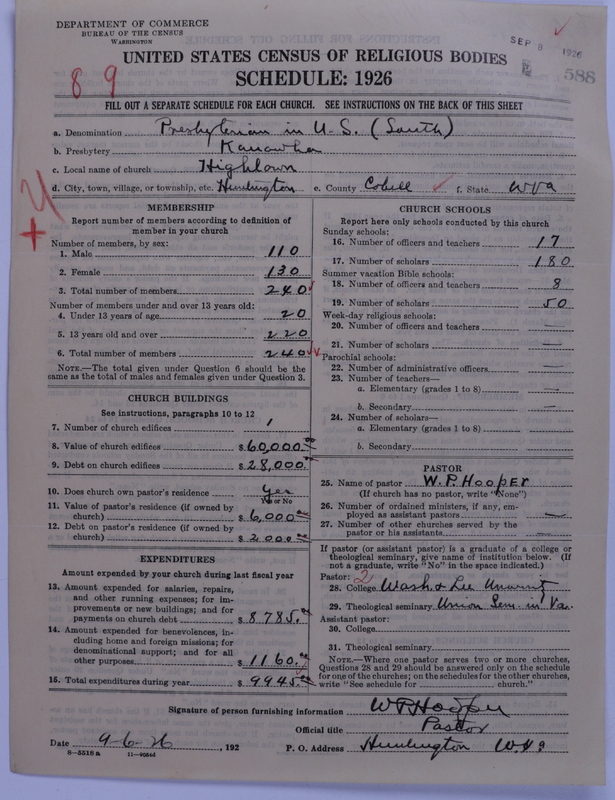 DEPARTMENT OF COMMERCE
BUREAU OF THE CENSUS
WASHINGTON
SEP 8 1926
588
UNITED STATES CENSUS OF RELIGIOUS BODIES
SCHEDULE: 1926
8 9
FILL OUT A SEPARATE SCHEDULE FOR EACH CHURCH. SEE INSTRUCTIONS ON THE BACK OF THIS SHEET
a. Denomination Presbyterian in U.S. (South)
b. Presbytery Kanawha
c. Local name of church Highlawn
d. City, town, village, or township, etc. Huntington e. County Cabell f. State W Va
MEMBERSHIP
Report number of members according to definition of
member in your church
Number of members, by sex:
1. Male 110
2. Female 130
3. Total number of members 240
Number of members under and over 13 years old:
4. Under 13 years of age 20
5. 13 years old and over 220
6. Total number of members 240
NOTE.—The total given under Question 6 should be
same as the total of males and females given under Question 3.
CHURCH BUILDINGS
See instructions, paragraphs 10 to 12
7. Number of church edifices 1
8. Value of church edifices $60,000.00
9. Debt on church edifices $28,000.00
10. Does church own pastor's residence Yes
Yes or No
11. Value of pastor's residence (if owned by
church) $6,000.00
12. Debt on pastor's residence (if owned by
church) $2000.00
EXPENDITURES
Amount expended by your church during last fiscal year
13. Amount expended for salaries, repairs,
and other running expenses; for im-
provements or new buildings; and for
payments on church debt $8785.00
14. Amount expended for benevolences, in-
cluding home and foreign missions; for
denominational support; and for all
other purposes $1160.00
15. Total expenditures during year $9945.00
CHURCH SCHOOLS
Report here only schools conducted by this church
Sunday schools:
16. Number of officers and teachers 17
17. Number of scholars 180
Summer vacation Bible schools:
18. Number of officers and teachers 8
19. Number of scholars 50
Week-day religious schools:
20. Number of officers and teachers —
21. Number of scholars —
Parochial schools:
22. Number of administrative officers —
23. Number of teachers—
a. Elementary (grades 1 to 8) —
b. Secondary —
24. Number of scholars—
a. Elementary (grades 1 to 8) —
b. Secondary —
PASTOR
25. Name of pastor W. P. Hooper
(If church has no pastor, write "None")
26. Number of ordained ministers, if any, em-
ployed as assistant pastors —
27. Number of other churches served by the
pastor or his assistants —
If pastor (or assistant pastor) is a graduate of a college or
theological seminary, give name of institution below. (If
not a graduate, write "No" in the space indicated.)
Pastor: 2
28. College Wash & Lee
29. Theological seminary Union Sem. in Va.
Assistant pastor:
30. College
31. Theological seminary
NOTE.—Where one pastor serves two or more churches,
Questions 28 and 29 should be answered only on the schedule
for one of the churches; on the schedules for the other churches,
write "See schedule for church."
Signature of person furnishing information W P Hooper
Official title Pastor
Date 9-6-26, 192 P. O. Address Huntington W Va
8—5518 a